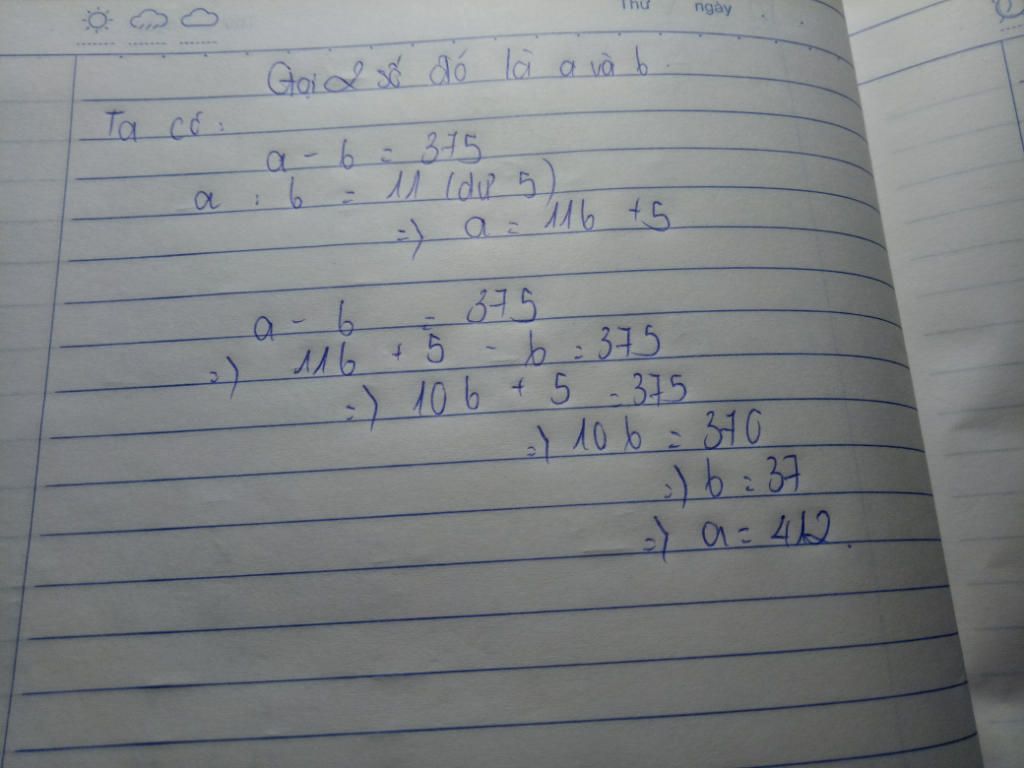 Thứ ngày
Gọi 2 số đó là a và b.
Ta có:
a - b = 375
a : b = 11 (dư 5)
=) a = 11b + 5
a - b = 375
=) 11b + 5 - b = 375
=) 10b + 5 = 375
=) 10b = 370
=) b = 37
=) a = 412.